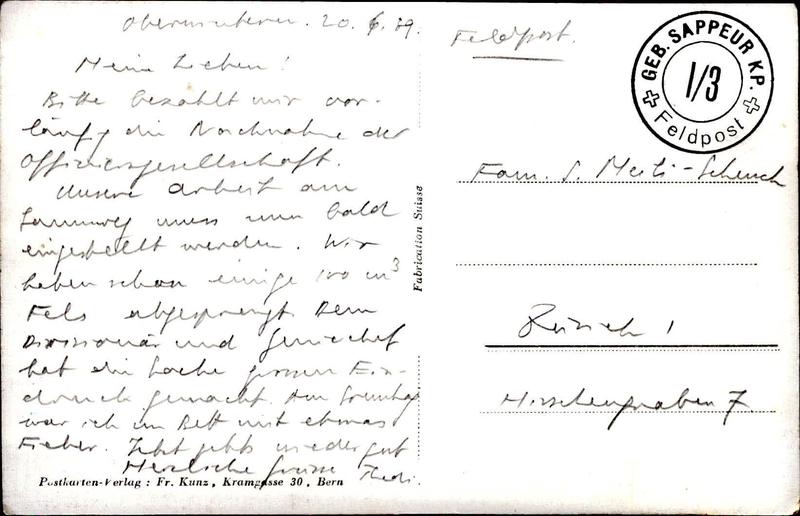 20. 6. 39.
Meine Lieben!
Bitte bezahlt mir vor-
läufig die Nachnahme der
Offiziersgesellschaft.
Unsere Arbeit am
muss nun bald
eingestellt werden. Wir
haben schon einige 100 m³
Fels abgesprengt. Dem
Divisionär und Geniechef
hat die Sache grossen Ein-
druck gemacht. Am Sonntag
war ich im Bett mit etwas
Fieber. Jetzt geht's wieder gut
Herzliche Grüsse
Postkarten-Verlag : Fr. Kunz, Kramgasse 30, Bern
Fabrication Suisse
Feldpost.
GEB. SAPPEUR KP.
I/3
Feldpost
Fam. S. Merki-Schenck
Zürich 1
Hirschengraben 7